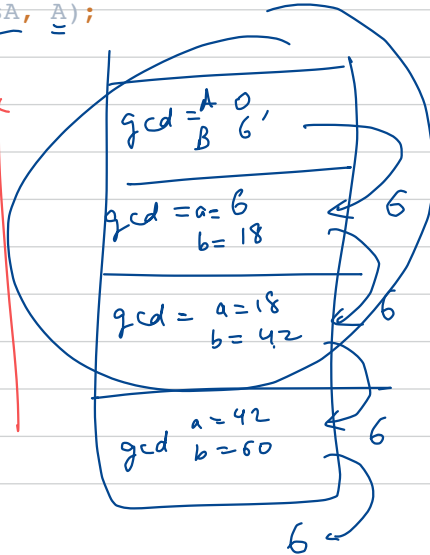 A, A);
gcd = A 0
B 6
gcd = a= 6
b= 18
6
gcd = a=18
b= 42
6
gcd a=42
b=60
6
6